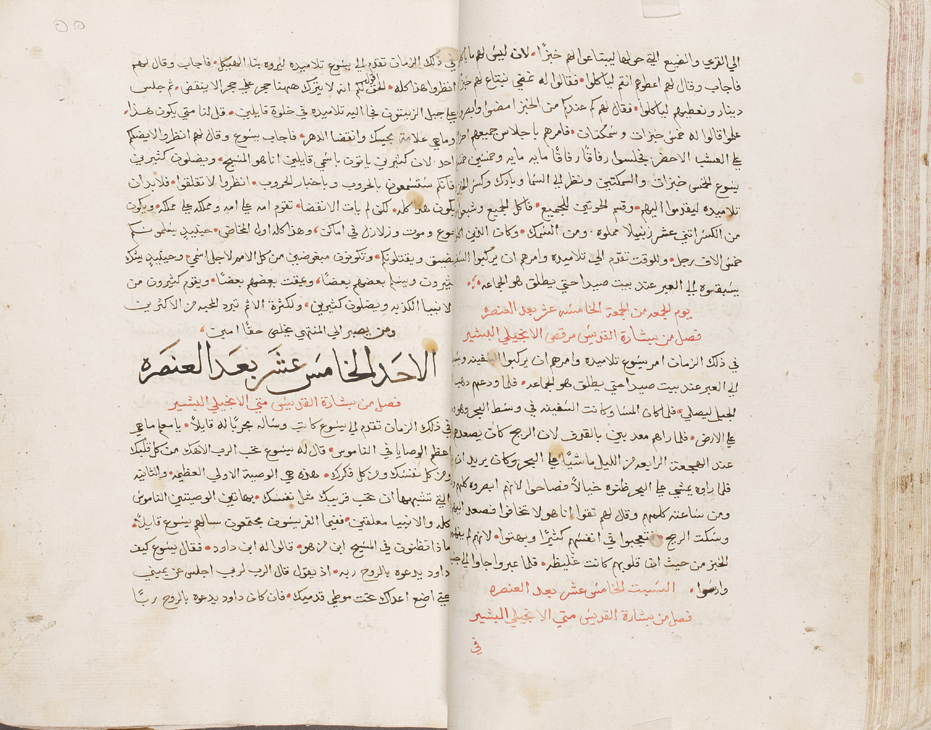 الي القري والضيع التي حولها ليبتاعوا لهم خبزًا • لان ليس لهم ما ياكلون
فاجاب وقال لهم اعطوهم انتم لياكلوا • فقالوا له نمضي نبتاع لهم خبز
دينار ونعطيهم لياكلوا • فقال لهم كم عندكم من الخبز امضوا وابصروا
علموا قالوا له خمس خبزات وسمكتان • فامرهم باجلاس جميعهم احزاب
علي العشب الاخضر فجلسوا رفاقًا رفاقًا مايه مايه وخمسين خمسين
يسوع الخمس خبزات والسمكتين ونظر الي السما وبارك وكسر الخبز
تلاميذه ليقدموا اليهم • وقسم الحوتين للجميع • فاكل الجميع وشبعوا
من الكسر اثني عشر زنبيلًا مملوه • ومن السمك • وكان الذين اكلوا
خمس الاف رجل • وللوقت تقدم الي تلاميذه وامرهم ان يركبوا السفينه
يسبقوه الي العبر عند بيت صيدا حتي يطلق هو الجماعه •
يوم الجمعه من الجمعة الخامسه عشر بعد العنصره
فصل من بشارة القديس مرقص الانجيلي البشير
في ذلك الزمان امر يسوع تلاميذه وامرهم ان يركبوا السفينه
الي العبر عند بيت صيدا حتي يطلق هو الجماعه • فلما ودعهم ذهب
الجبل ليصلي • فلما كان المسا وكانت السفينه في وسط البحر وهو
علي الارض • فلما راهم معذبين بالقذف لان الريح كانت بضدهم
عند الهجعة الرابعه من الليل ماشيًا علي البحر وكان يريد ان
فلما راوه يمشي علي البحر ظنوه خيالًا فصاحوا لانهم ابصروه كلهم
ومن ساعته كلمهم وقال لهم تقووا انا هو لا تخافوا فصعد اليهم
وسكت الريح • فتعجبوا في انفسهم كثيرًا وبهتوا • لانهم لم يفهموا
الخبز من حيث ان قلوبهم كانت غليظه • فلما عبروا جاوا الي
وارسوا • السبت الخامس عشر بعد العنصره
فصل من بشارة القديس متي الانجيلي البشير
في
في ذلك الزمان تقدم الي يسوع تلاميذه ليروه بنا الهيكل • فاجاب وقال لهم
انظروا هذا كله • الحق اقول لكم انه لا يترك ههنا حجر علي حجر الا ينقض • ثم جلس
علي جبل الزيتون فجا اليه تلاميذه في خلوة قايلين • قل لنا متي يكون هذا •
وما هي علامة مجيك وانقضا الدهر • فاجاب يسوع وقال لهم انظروا لا يضلكم
احد لان كثيرين ياتون باسمي قايلين انا هو المسيح • ويضلون كثيرين
فانكم ستسمعون بالحروب وباخبار الحروب • انظروا لا تقلقوا • فلا بد ان
يكون هذا كله • لكن لم يات الانقضا • تقوم امه علي امه ومملكه علي مملكه • ويكون
جوع وموت وزلازل في اماكن • وهذا كله اول المخاض • حينيذٍ يسلمونكم
لضيق ويقتلونكم • وتكونون مبغوضين من كل الامم لاجل اسمي • وحينيذٍ يشك
كثيرون ويسلم بعضهم بعضًا • ويمقت بعضهم بعضًا • ويقوم كثيرون من
الانبيا الكذبه ويضلون كثيرين • ولكثرة الاثم تبرد المحبه من الاكثرين
ومن يصبر الي المنتهي يخلص حقًا امين •
الاحد الخامس عشر بعد العنصره
فصل من بشارة القديس متي الانجيلي البشير
في ذلك الزمان تقدم الي يسوع كاتب وساله مجربًا له قايلًا • يا معلم ما هي
اعظم الوصايا في الناموس • قال له يسوع تحب الرب الاهك من كل قلبك
ومن كل نفسك ومن كل فكرك • هذه هي الوصية الاولي العظيمه • والثانيه
التي تشبهها ان تحب قريبك مثل نفسك • بهاتين الوصيتين الناموس
كله والانبيا معلقين • ففيما الفريسيون مجتمعون سالهم يسوع قايلًا •
ماذا تظنون في المسيح ابن من هو • قالوا له ابن داود • فقال يسوع كيف
داود يدعوه بالروح ربه • اذ يقول قال الرب لربي اجلس عن يميني
حتي اضع اعداك تحت موطي قدميك • فان كان داود يدعوه بالروح ربًا